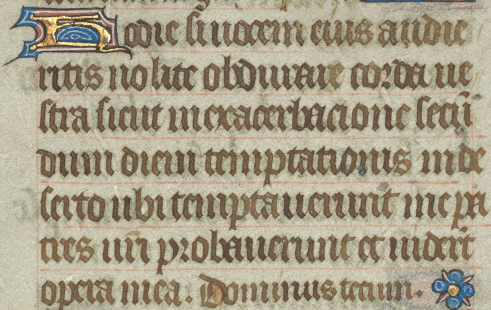 Hodie si uocem eius audie
ritis nolite obdurare corda ue
stra sicut in exacerbacione secū
dum diem temptationis in de
serto ubi temptauerunt me pa
tres uri probauerunt et uidert
opera mea. Dominus tecum.